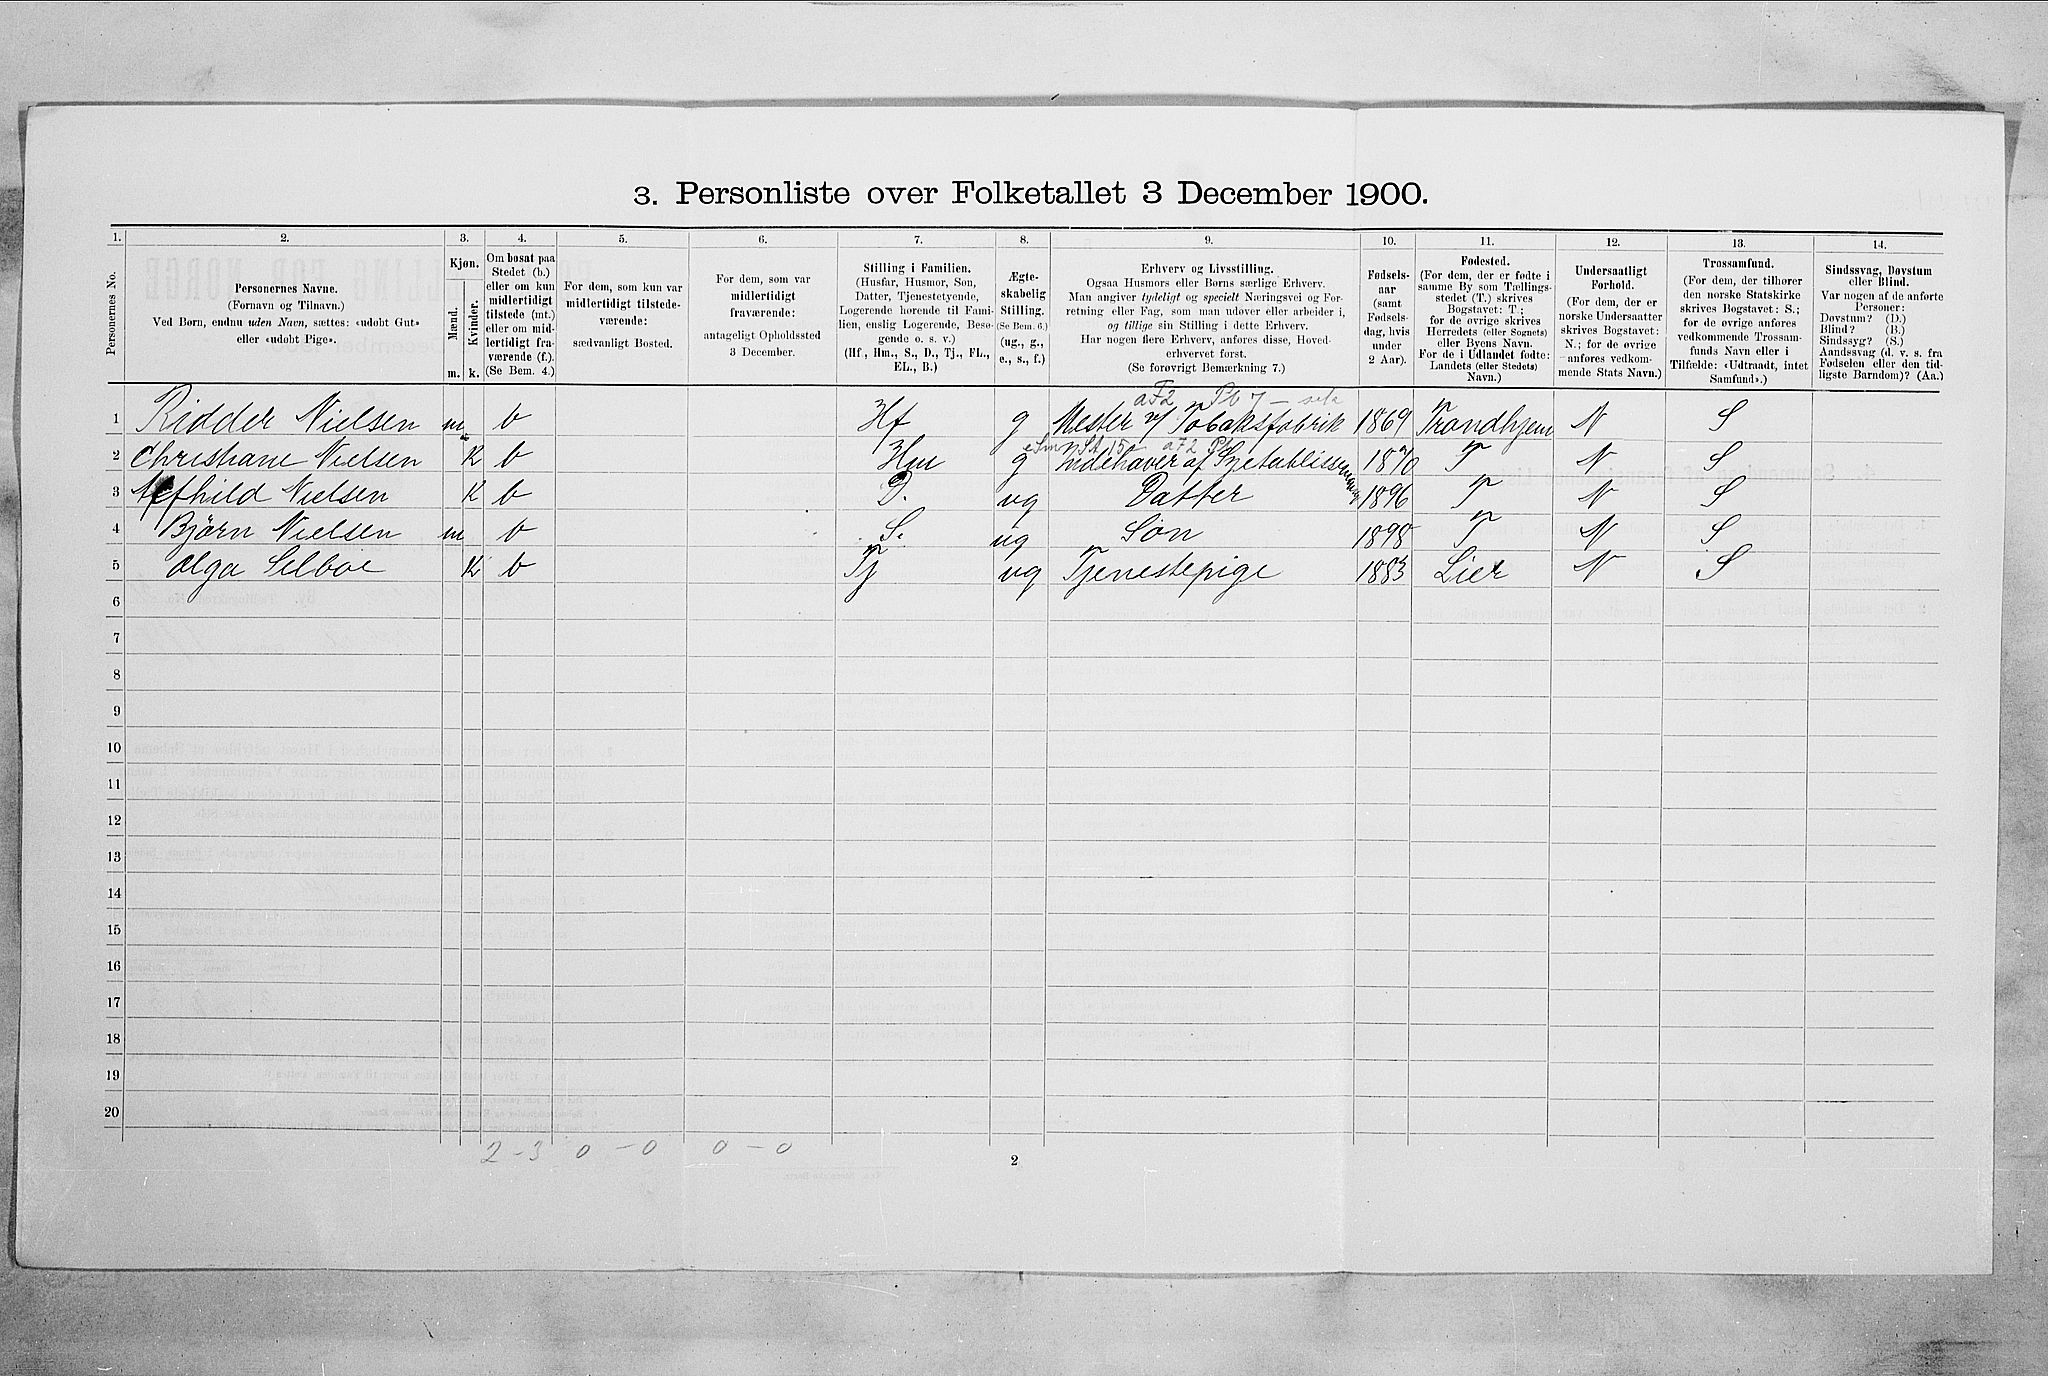 3. Personliste over Folketallet 3 December 1900.
1. 2. 3. 4. 5. 6. 7. 8. 9. 10. 11. 12. 13. 14.
Personernes No.
Personernes Navne.
(Fornavn og Tilnavn.)
Ved Børn, endnu uden Navn, sættes: «udøbt Gut»
eller «udøbt Pige».
Kjøn.
Mænd. Kvinder.
m. k.
Om bosat paa
Stedet (b.)
eller om kun
midlertidigt
tilstede (mt.)
eller om mid-
lertidigt fra-
værende (f.).
(Se Bem. 4.)
For dem, som kun var
midlertidigt tilstede-
værende:
sædvanligt Bosted.
For dem, som var
midlertidigt
fraværende:
antageligt Opholdssted
3 December.
Stilling i Familien.
(Husfar, Husmor, Søn,
Datter, Tjenestetyende,
Logerende hørende til Fami-
lien, enslig Logerende, Besø-
gende o. s. v.)
(Hf., Hm., S., D., Tj., FL.,
EL., B.)
Ægte-
skabelig
Stilling.
(Se Bem. 6.)
(ug., g.,
e., s., f.)
Erhverv og Livsstilling.
Ogsaa Husmors eller Børns særlige Erhverv.
Man angiver tydeligt og specielt Næringsvei og For-
retning eller Fag, som man udøver eller arbeider i,
og tillige sin Stilling i dette Erhverv.
Har nogen flere Erhverv, anføres disse, Hoved-
erhvervet først.
(Se forøvrigt Bemærkning 7.)
Fødsels-
aar
(samt
Fødsels-
dag, hvis
under
2 Aar).
Fødested.
(For dem, der er fødte i
samme By som Tællings-
stedet (T.) skrives
Bogstavet: T.;
for de øvrige skrives
Herredets (eller Sognets)
eller Byens Navn.
For de i Udlandet fødte:
Landets (eller Stedets)
Navn.)
Undersaatligt
Forhold.
(For dem, der er
norske Undersaatter
skrives Bogstavet:
N.; for de øvrige
anføres vedkom-
mende Stats Navn.)
Trossamfund.
(For dem, der tilhører
den norske Statskirke
skrives Bogstavet: S.;
for de øvrige anføres
vedkommende Trossam-
funds Navn eller i
Tilfælde: «Udtraadt, intet
Samfund».)
Sindssvag, Døvstum
eller Blind.
Var nogen af de anførte
Personer:
Døvstum? (D.)
Blind? (B.)
Sindssyg? (S.)
Aandssvag (d. v. s. fra
Fødselen eller den tid-
ligste Barndom)? (Aa.)
aF2 Pb 7
1 Ridder Nielsen m b Hf g Mester v/ Tobaksfabrik 1869 Trondhjem N S
aF2
2 Christiane Nielsen K b Hm g Indehaver af 1870 T N S
3 Nielsen K b D. ug Datter 1896 T N S
4 Bjørn Nielsen m b S. ug Søn 1898 T N S
5 Olga Selboe K b Tj ug Tjenestepige 1883 Lier N S
6
7
8
9
10
11
12
13
14
15
16
17
18
19
20
2 – 3 0 – 0 0 – 0
2